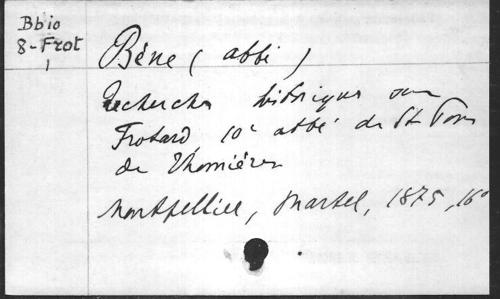 Bbio
8-Frot
1
Bène (abbé)
Recherches historiques sur
Frotard, 10e abbé de St Pons
de Thomières
Montpellier, Martel, 1875, 16°